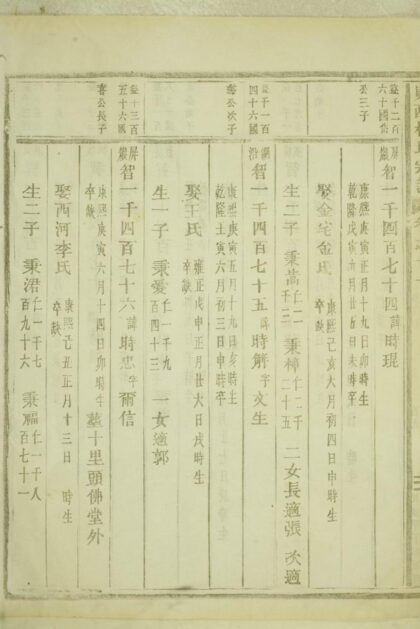 益千二百
六十國
公三子
屏巖智一千四百七十四諱時琨
康熙庚寅正月十九日卯時生
乾隆戊寅六月廿五日未時卒
娶金宅金氏
康熙己亥六月初四日申時生
卒缺
生二子 秉嵩 仁一千二 秉樟 仁二千二十五 二女長適張 次適
益千一百
四十六國
公次子
智一千四百七十五諱時解字文生
康熙庚寅五月十九日亥時生
乾隆壬寅六月初三日申時卒
娶王氏
雍正戊申正月廿六日戌時生
卒缺
生一子 秉愛 仁一千九百四十三 一女適郭
益十三百
五十六國
公長子
屏巖智一千四百七十六諱時忠字爾信
康熙庚寅六月十四日卯時生墓十里頭佛堂外
卒缺
娶西河李氏
康熙己丑正月十三日 時生
卒缺
生二子 秉沼 仁一千七百九十六 秉福 仁一千八百七十一